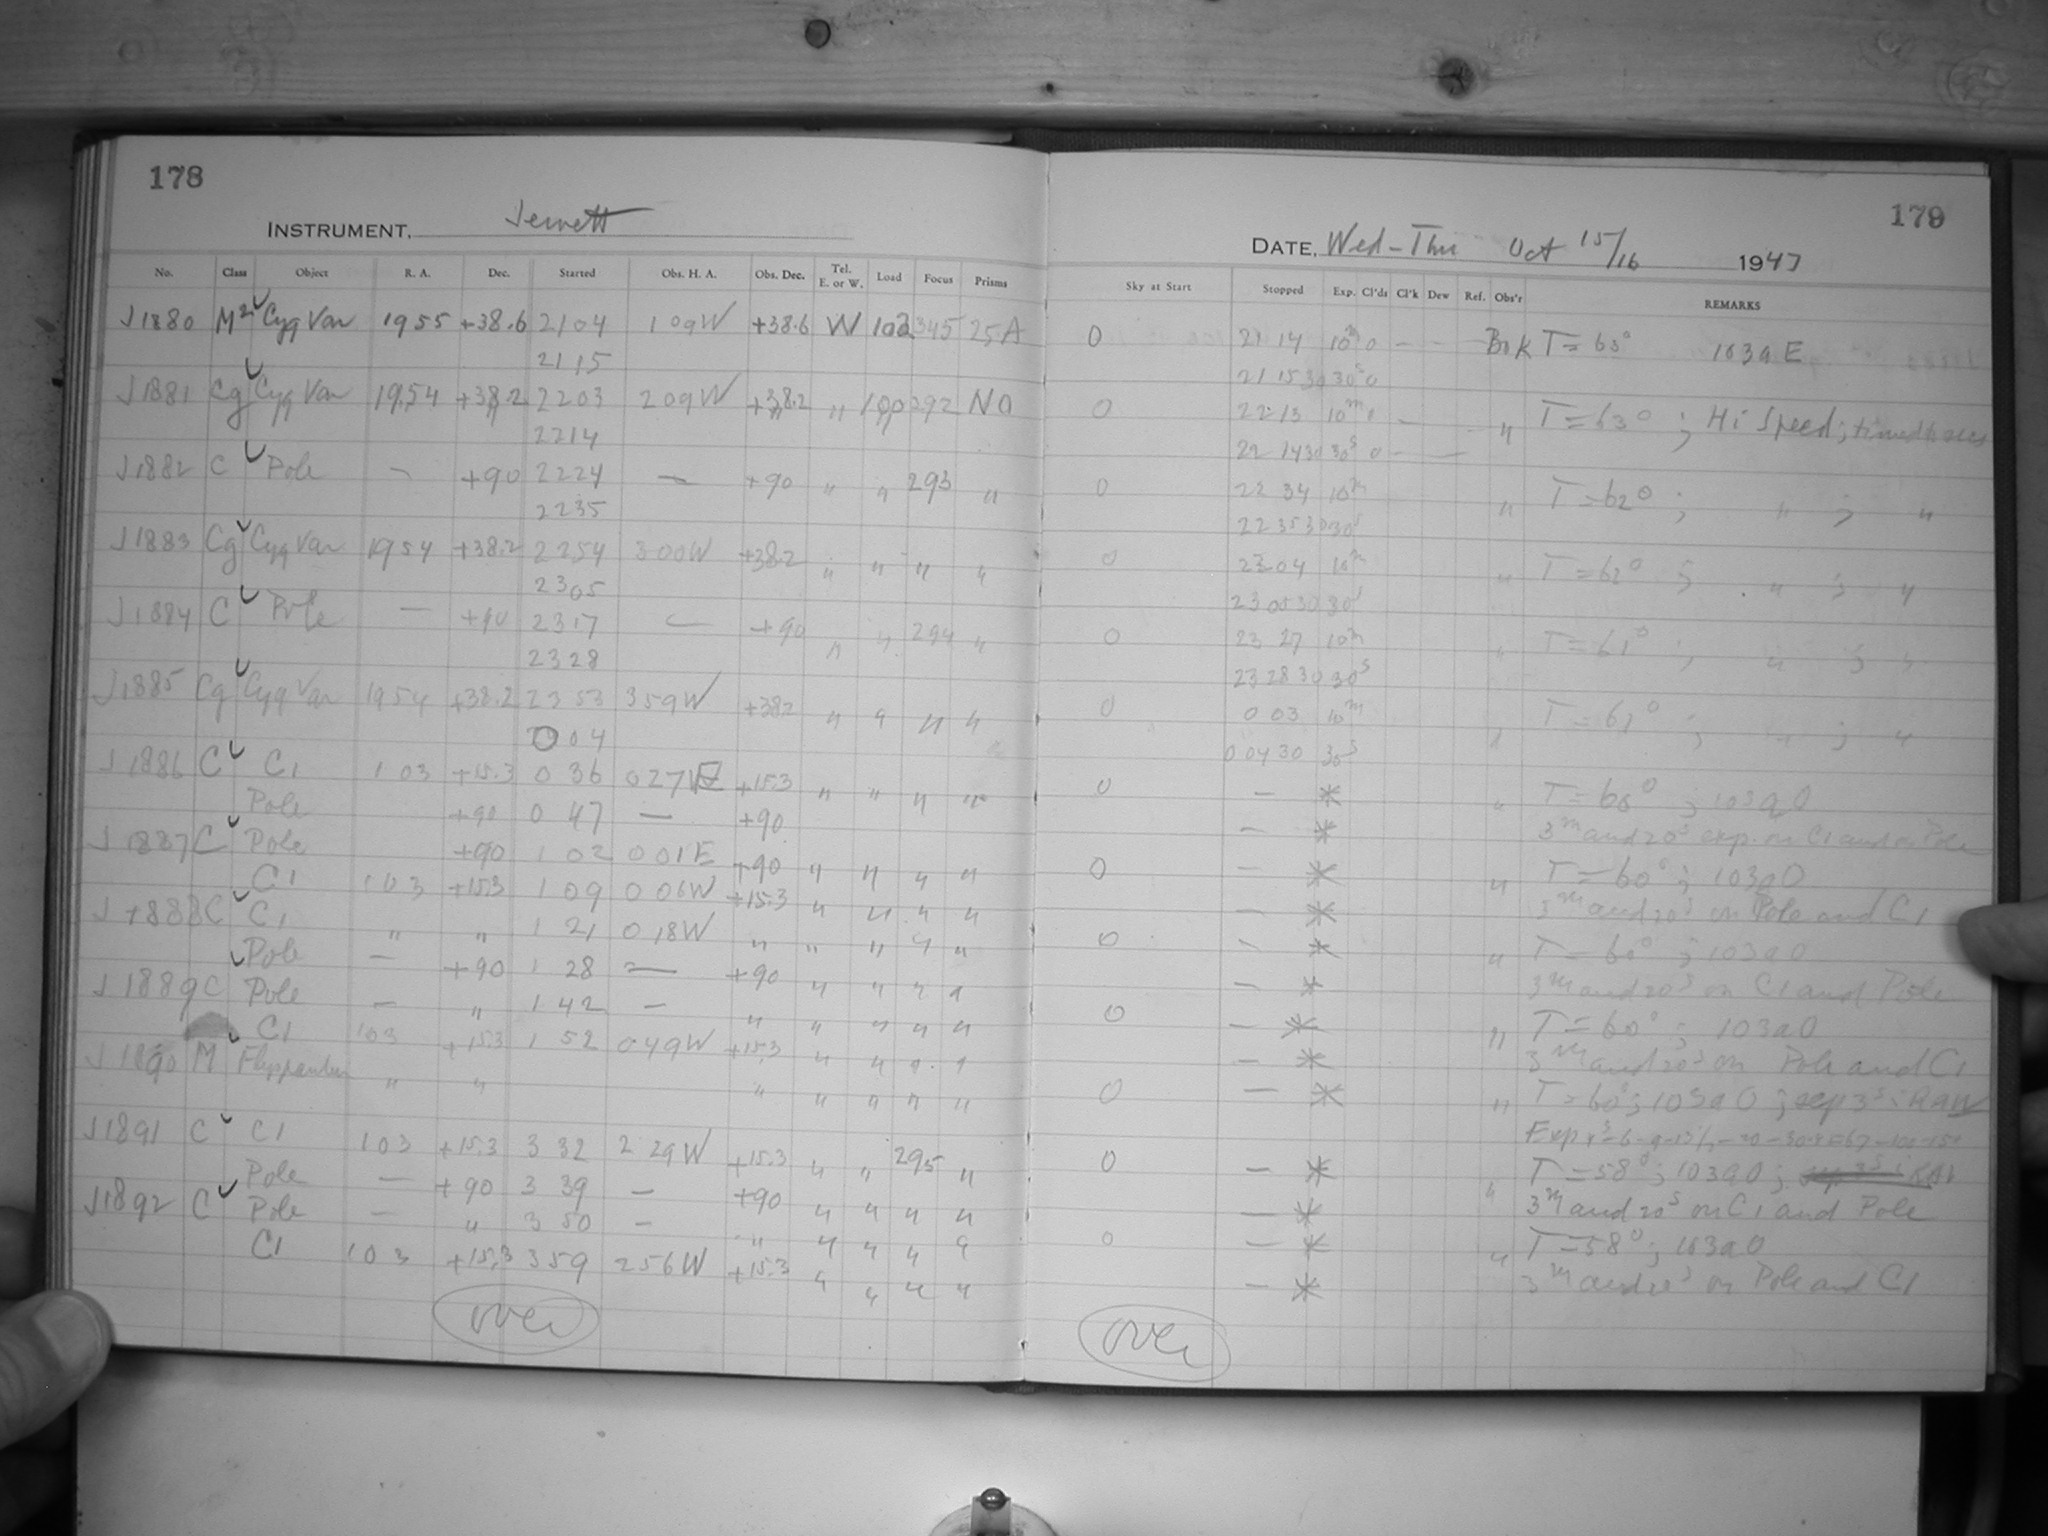 178
INSTRUMENT, Jewett
No. Class Object R. A. Dec. Started Obs. H. A. Obs. Dec. Tel. E. or W. Load Focus Prisms
J1880 M² Cyg Var 1955 +38.6 2104 1 09W +38.6 W 102 345 25A
2115
J1881 Cg Cyg Var 1954 +38.2 2203 2 09W +38.2 " 100 292 NO
2214
J1882 C Pole — +90 2224 — +90 " " 293 "
2235
J1883 Cg Cyg Var 1954 +38.2 2254 300W +38.2 " " " "
2305
J1884 C Pole — +90 2317 — +90 " " 294 "
2328
J1885 Cg Cyg Var 1954 +38.2 2353 359W +38.2 " " " "
0 04
J1886 C C1 1 03 +15.3 0 36 027 E +15.3 " " " "
Pole +90 0 47 — +90
J1887 C Pole +90 1 02 0 01E +90 " " " "
C1 1 03 +15.3 1 09 0 06W +15.3 " " " "
J1888 C C1 " " 1 21 0 18W " " " " "
Pole — +90 1 28 — +90 " " " "
J1889 C Pole — " 1 42 — " " " " "
C1 103 +15.3 1 52 049W +15.3 " " " "
J1890 M " " " " " " "
J1891 C C1 103 +15.3 3 32 2 29W +15.3 " " 295 "
Pole — +90 3 39 — +90 " " " "
J1892 C Pole — " 3 50 — " " " " "
C1 103 +15.3 359 256W +15.3 " " " "
over
179
DATE, Wed-Thu Oct 15/16 1947
Sky at Start Stopped Exp. Cl'ds Cl'k Dew Ref. Obs'r REMARKS
0 21 14 10m 0 — — BnK T=63° 103aE
21 1530 30s 0
0 22 13 10m 0 — " T=63°; Hi Speed;
22 1430 30s 0 — —
0 22 34 10m " T=62°; " ; "
22 3530 30s
0 23 04 10m " T=62° ; " ; "
23 0530 30s
0 23 27 10m " T=61° ; " ; "
23 2830 30s
0 0 03 10m " T=61° ; " ; "
0 04 30 30s
0 — * " T=60° ; 103aO
— * 3m and 20s exp. on C1 and on Pole
0 — * " T=60°; 103aO
— * 3m and 20s on Pole and C1
0 — * " T=60° ; 103aO
— * 3m and 20s on C1 and Pole
0 — * " T=60° ; 103aO
— * 3m and 20s on Pole and C1
0 — * " T=60°; 103aO; sep 3s; RAW
0 — * " T=58°; 103aO;
— * 3m and 20s on C1 and Pole
0 — * " T=58°; 103aO
— * 3m and 20s on Pole and C1
over